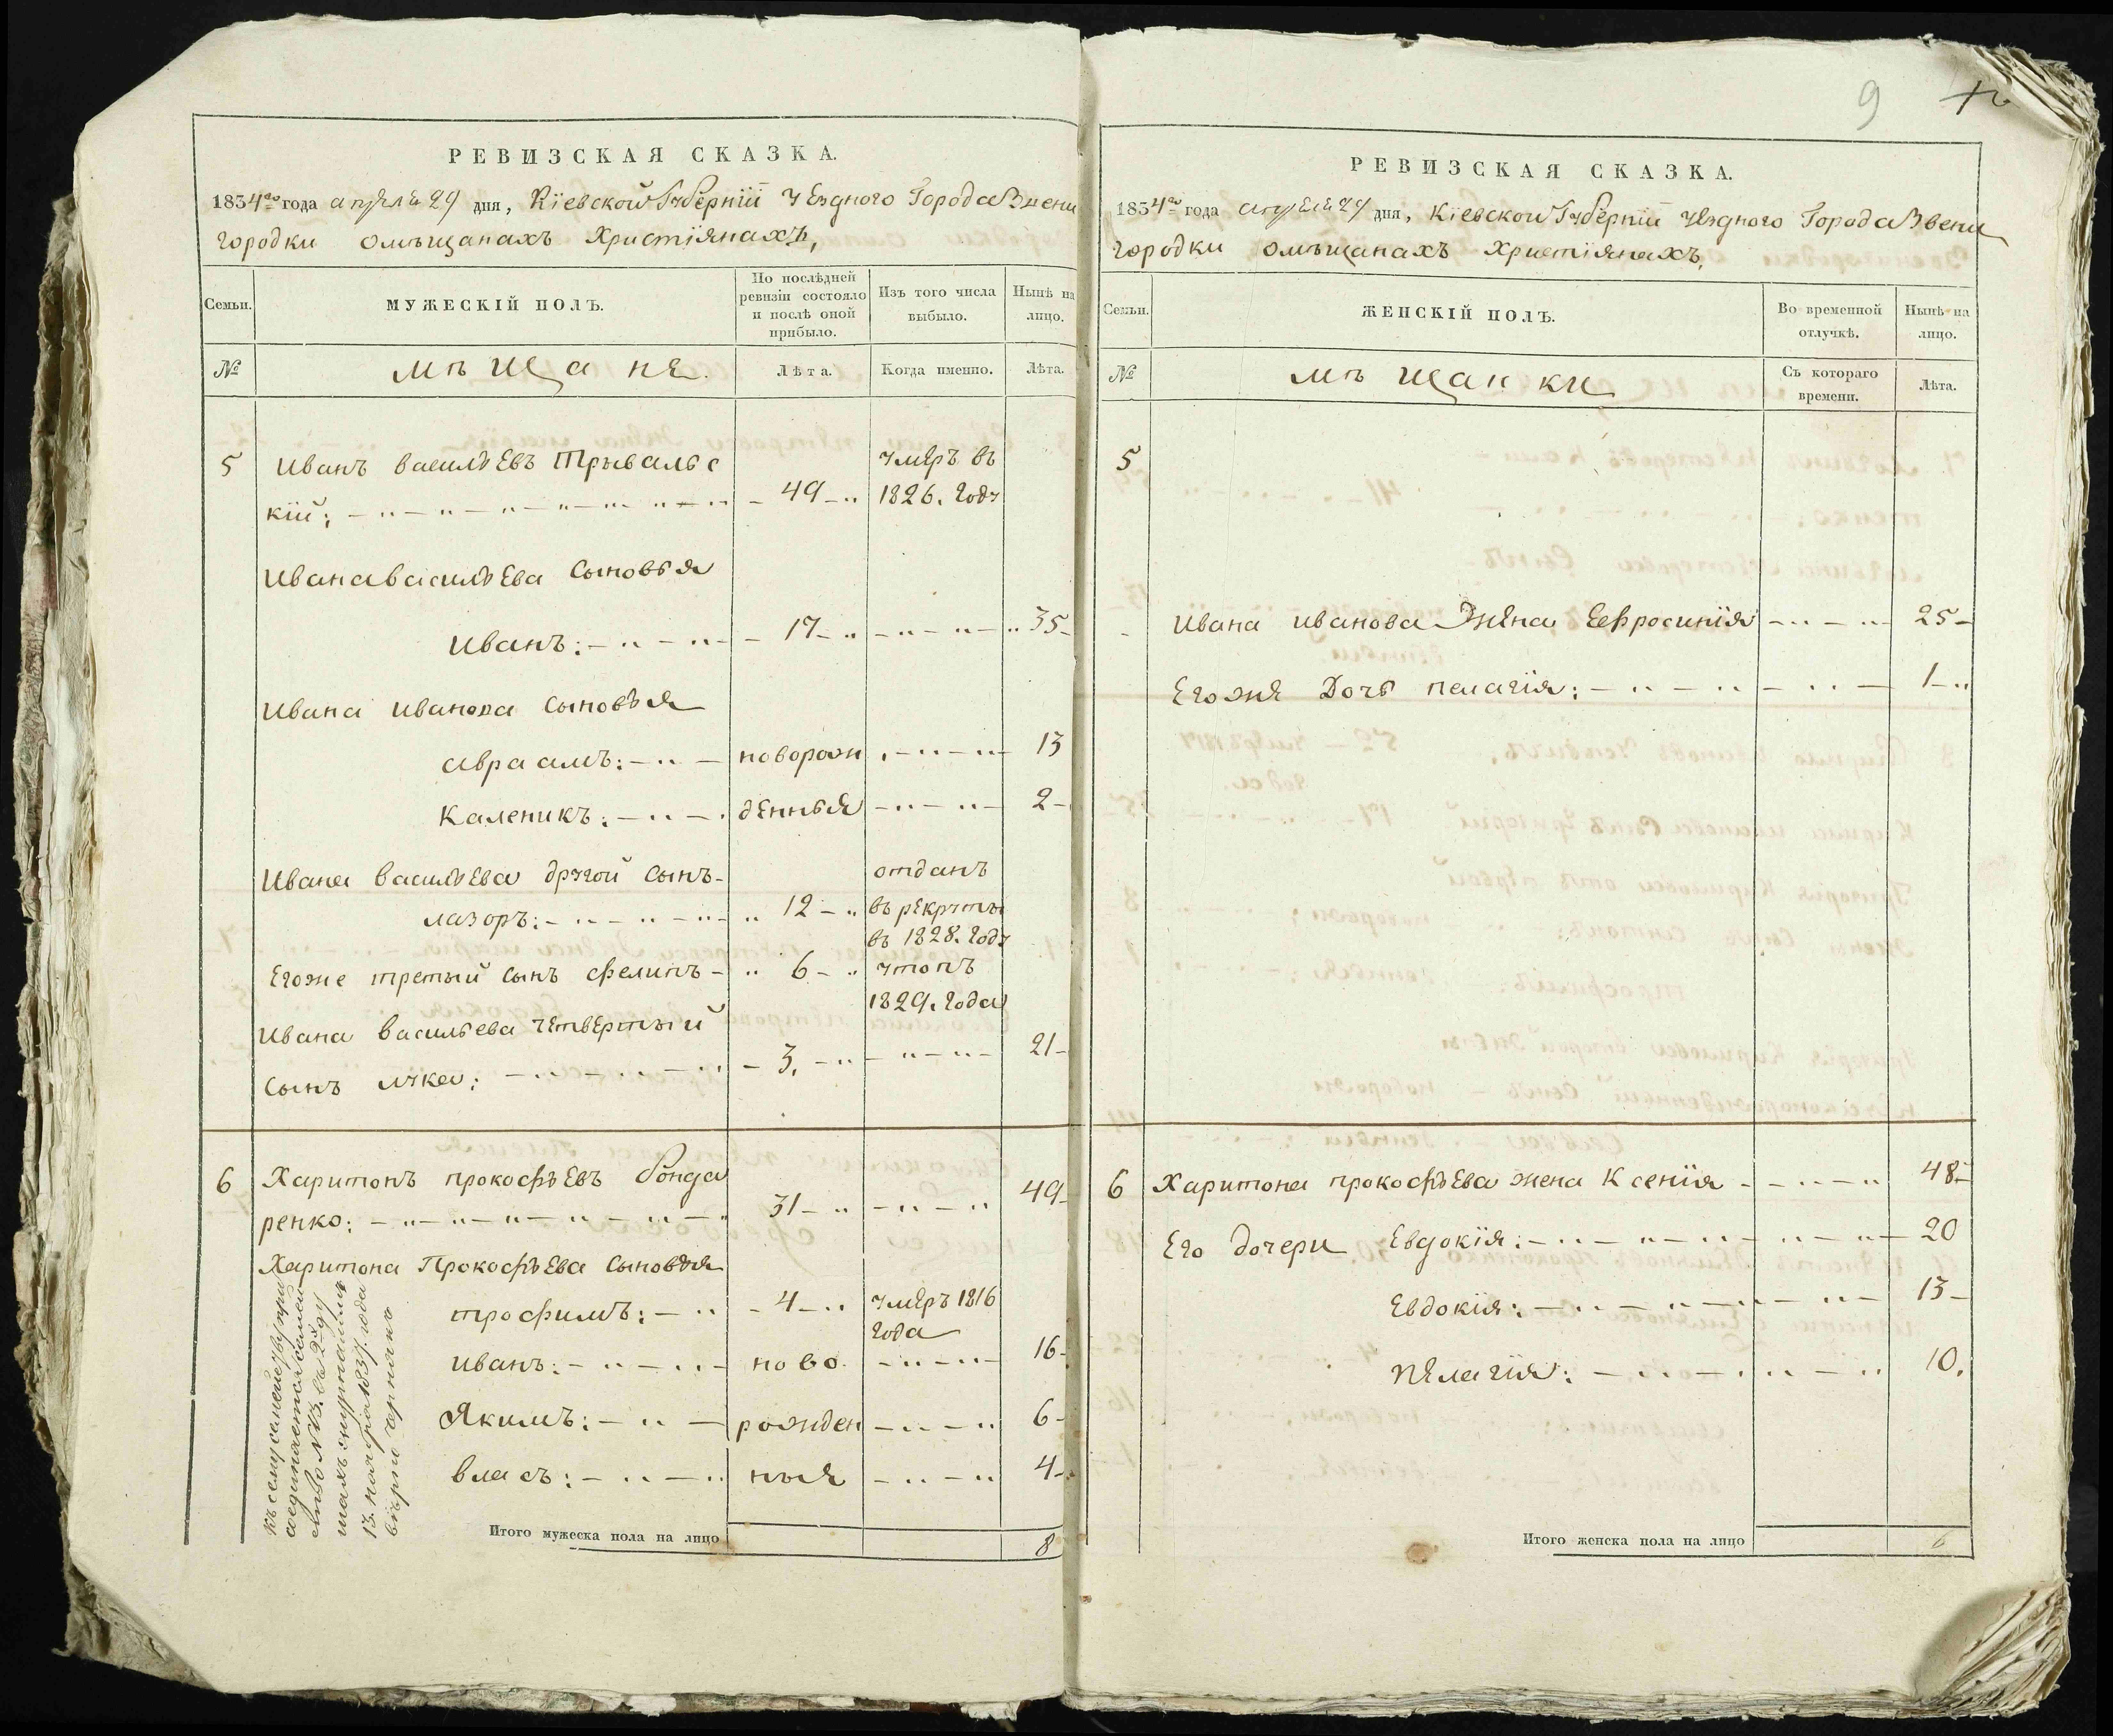 РЕВИЗСКАЯ СКАЗКА.
1834го года апреля 29 дня, Кіевской Губерніи Уезднаго Города Звени
городки омъщанахъ Христіянахъ,
Семьи.
МУЖЕСКІЙ ПОЛЪ.
По послѣдней ревизіи состояло и послѣ оной прибыло.
Изъ того числа выбыло.
Нынѣ на лицо.
№
мъщане.
Лѣта.
Когда именно.
Лѣта.
5 Иванъ васильевъ Трывальс умеръ въ
кій: 49 1826. году
Ивана васильева сыновья
Иванъ: 17 35
Ивана Иванова сыновья
авраамъ: новорож 13
Каленикъ: денныя 2
Ивана васильева другой сынъ отданъ
лазоръ: 12 въ рекруты
въ 1828. году
Егоже третый сынъ филипъ 6 утопъ
1829. года
Ивана васильева четвертый
сынъ лука: 3. 21
6 Харитонъ прокофьевъ бонда
ренко: 31 49
Харитона Прокофьева сыновья
трофимъ: 4 умеръ 1816
года
иванъ: ново 16
Якимъ: рожден 6
власъ: ныя 4
къ сему семейству при
соединяется семей
ство №3. въ 2й
13. ноября 1837. года
Итого мужеска пола на лицо 8
9
РЕВИЗСКАЯ СКАЗКА.
1834го года апреля 29 дня, Кіевской Губерніи Уезднаго Города Звени
городки омъщанахъ Христіянахъ,
Семьи.
ЖЕНСКІЙ ПОЛЪ.
Во временной отлучкѣ.
Нынѣ на лицо.
№
мъщанки
Съ котораго времени.
Лѣта.
5
Ивана иванова Жена Ефросинія 25
Егоже Дочь пелагія: 1
6 Харитона прокофьева жена Ксенія 48
Его дочери Евдокія: 20
Евдокія: 13
пелагія: 10.
Итого женска пола на лицо 6